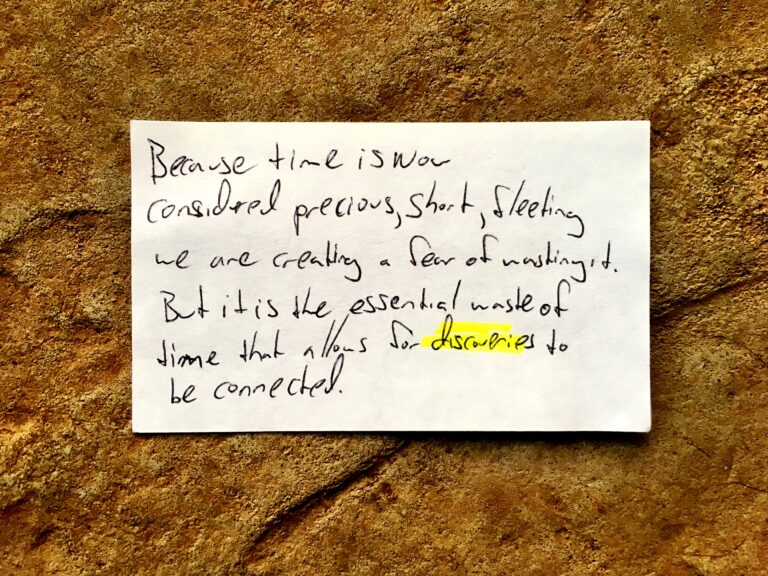 Because time is now
considered precious, short, fleeting
we are creating a fear of wasting it.
But it is the essential waste of
time that allows for discoveries to
be connected.